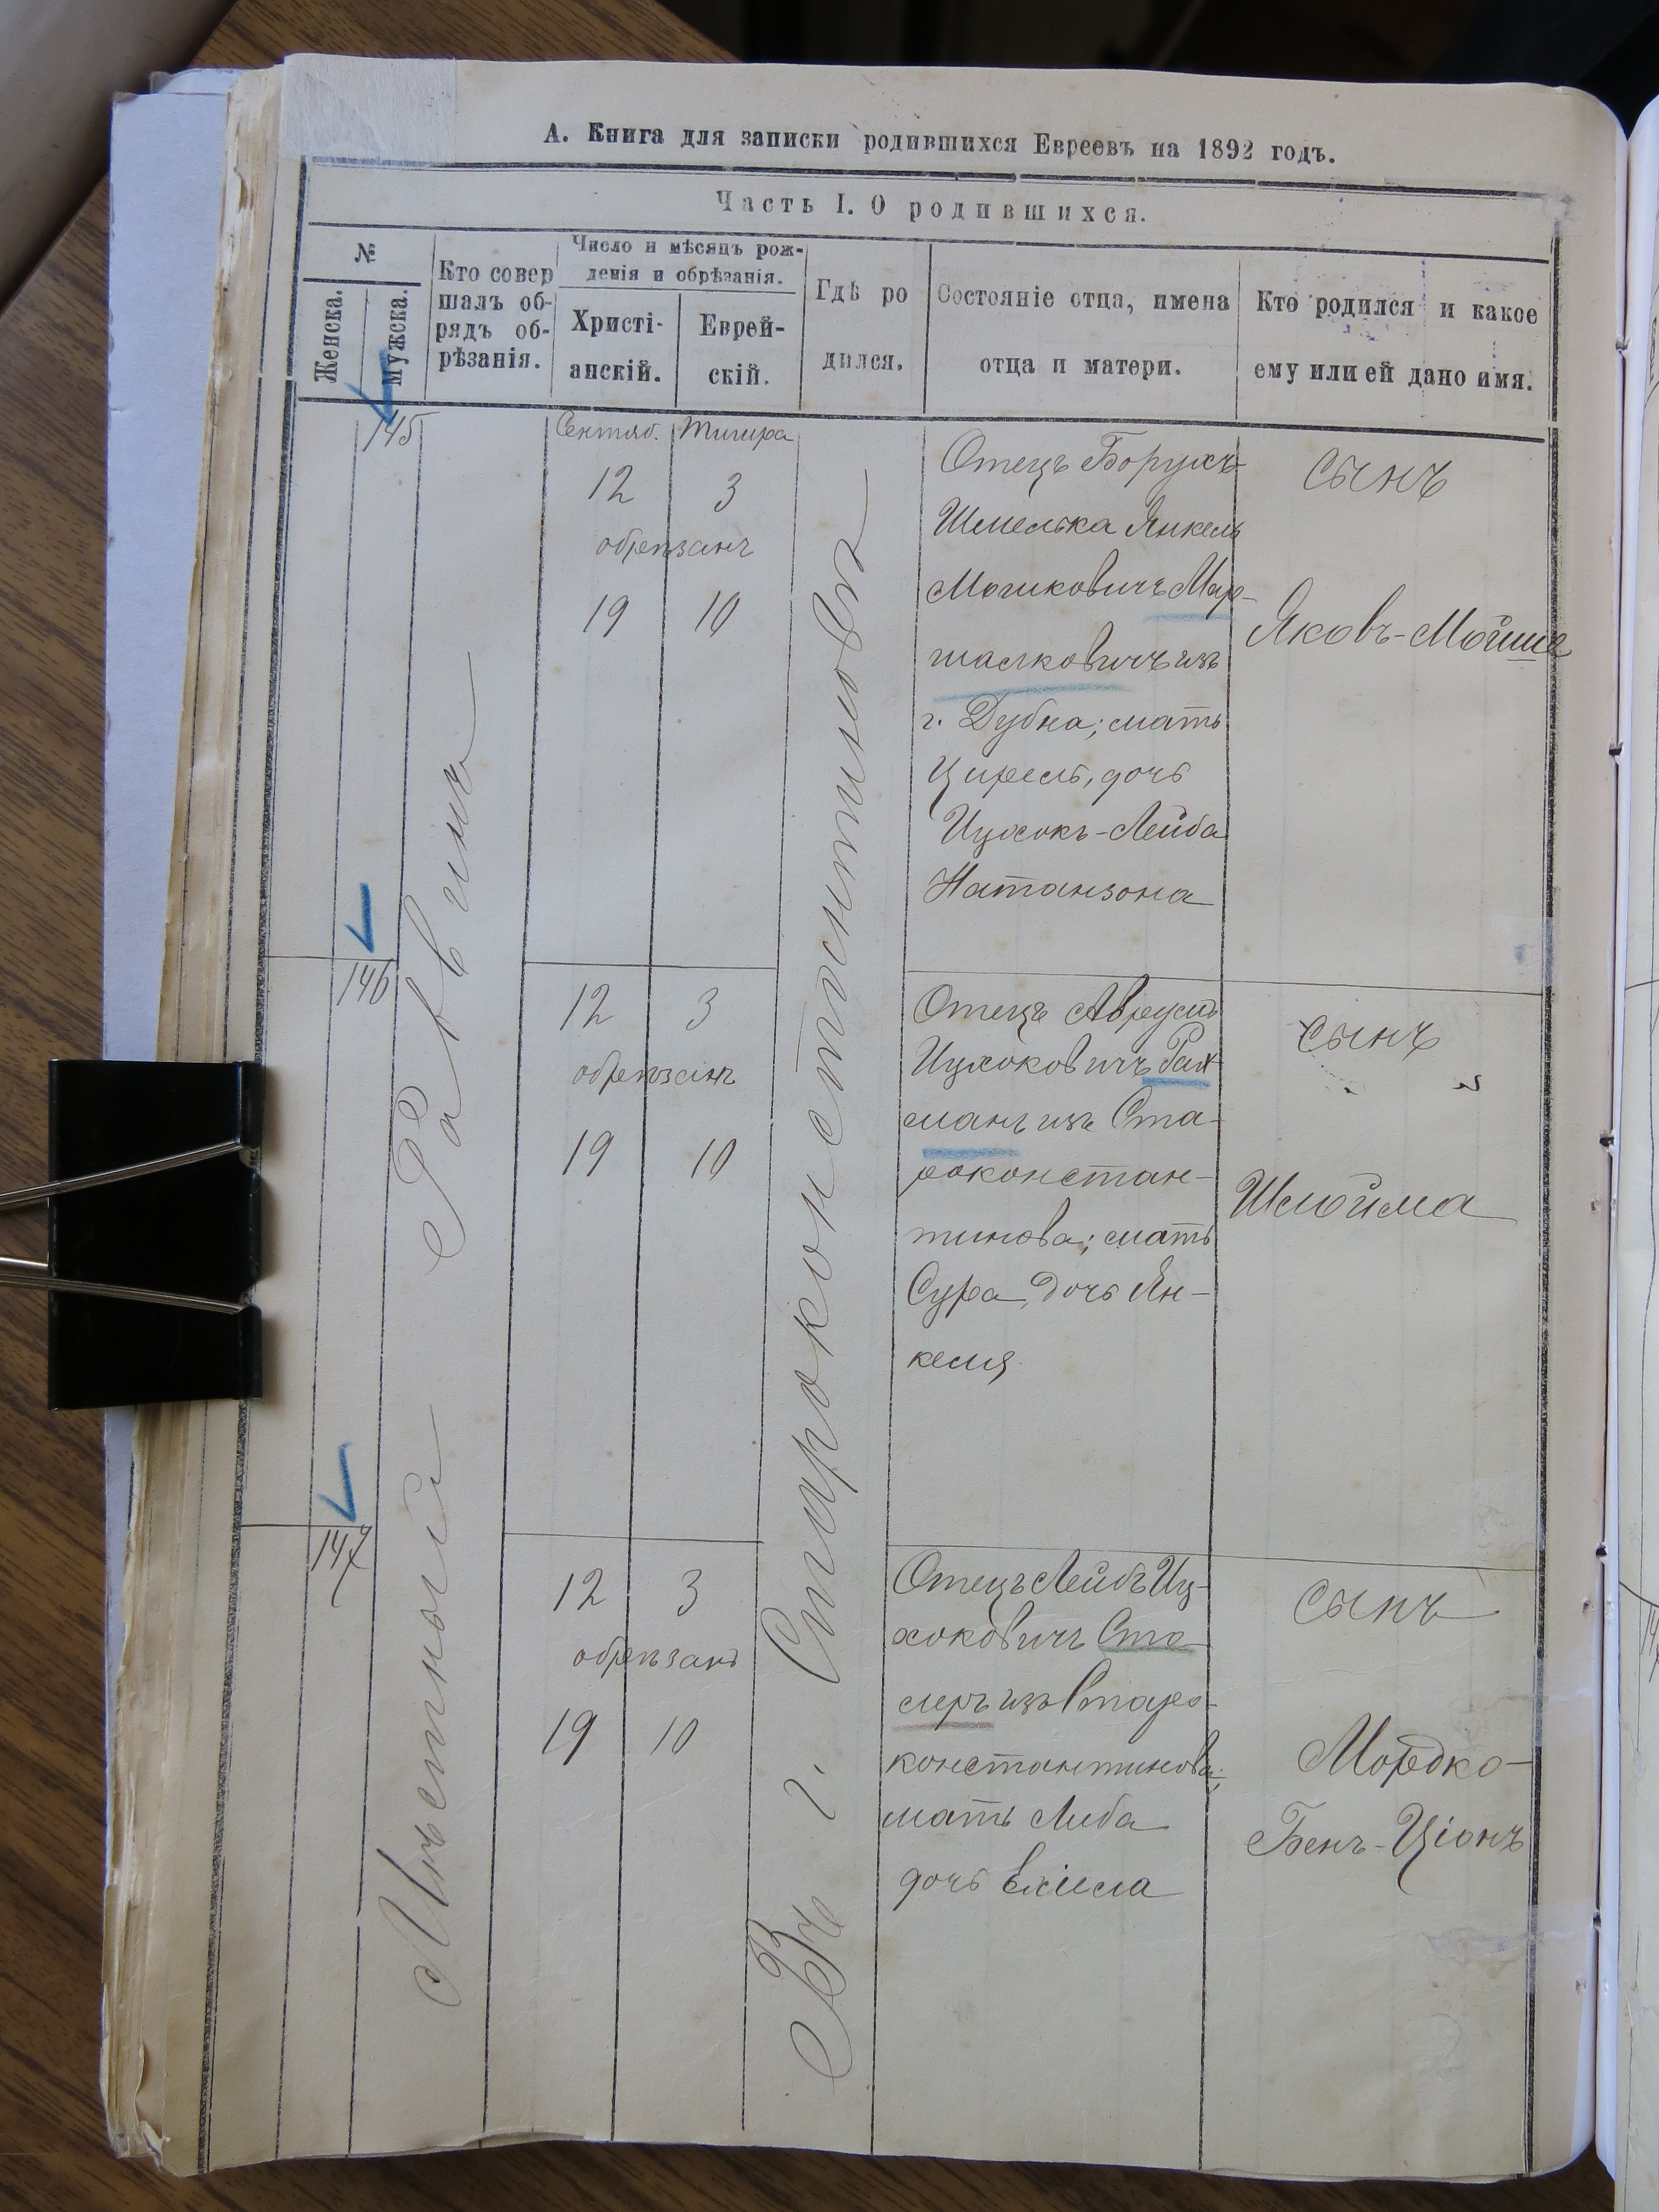 А. Книга для записки родившихся Евреевъ на 1892 годъ.
Часть I. О родившихся.
№
Женска.
Мужска.
Кто совер
шалъ об-
рядъ об-
рѣзанія.
Число и мѣсяцъ рож-
денія и обрѣзанія.
Христі-
анскій.
Еврей-
скій.
Гдѣ ро
дился.
Состояніе отца, имена
отца и матери.
Кто родился и какое
ему или ей дано имя.
Мѣстный Раввинъ
Въ г. Староконстантиновѣ
145
Сентяб. Тишра
12 3
обрѣзанъ
19 10
Отецъ Борухъ-
Шмелька Янкель
Мошковичъ Мар-
шалковичъ изъ
г. Дубна; мать
Цирель, дочь
Ицхокъ-Лейба
Натанзона
сынъ
Яковъ-Мойше
146
12 3
обрѣзанъ
19 10
Отецъ Аврумъ
Ицхоковичъ Рах
манъ изъ Ста-
роконстан-
тинова; мать
Сура, дочь Ян-
келя
сынъ
Шлойма
147
12 3
обрѣзанъ
19 10
Отецъ Лейбъ Иц-
хоковичъ Сто
леръ изъ Старо-
константинова;
мать Либа
дочь
сынъ
Мордко-
Бенъ-Ціонъ